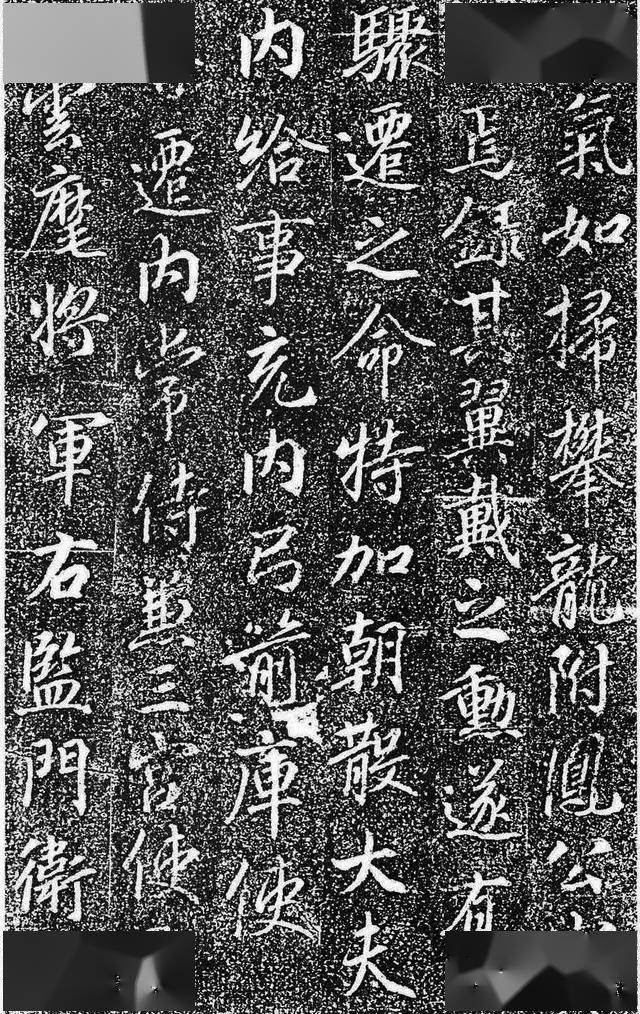 氣如掃攀龍附鳳公
焉錄其翼戴之勳遂有
驟遷之命特加朝散大夫
內給事充內弓箭庫使
遷內常侍兼三宮使
雲麾將軍右監門衛